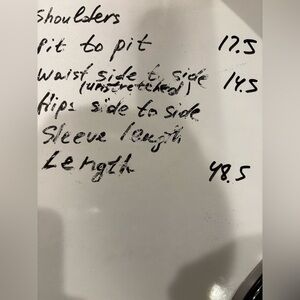 Shoulders
Pit to pit 17.5
Waist side to side 14.5
(unstretched)
Hips side to side
Sleeve length
Length 48.5